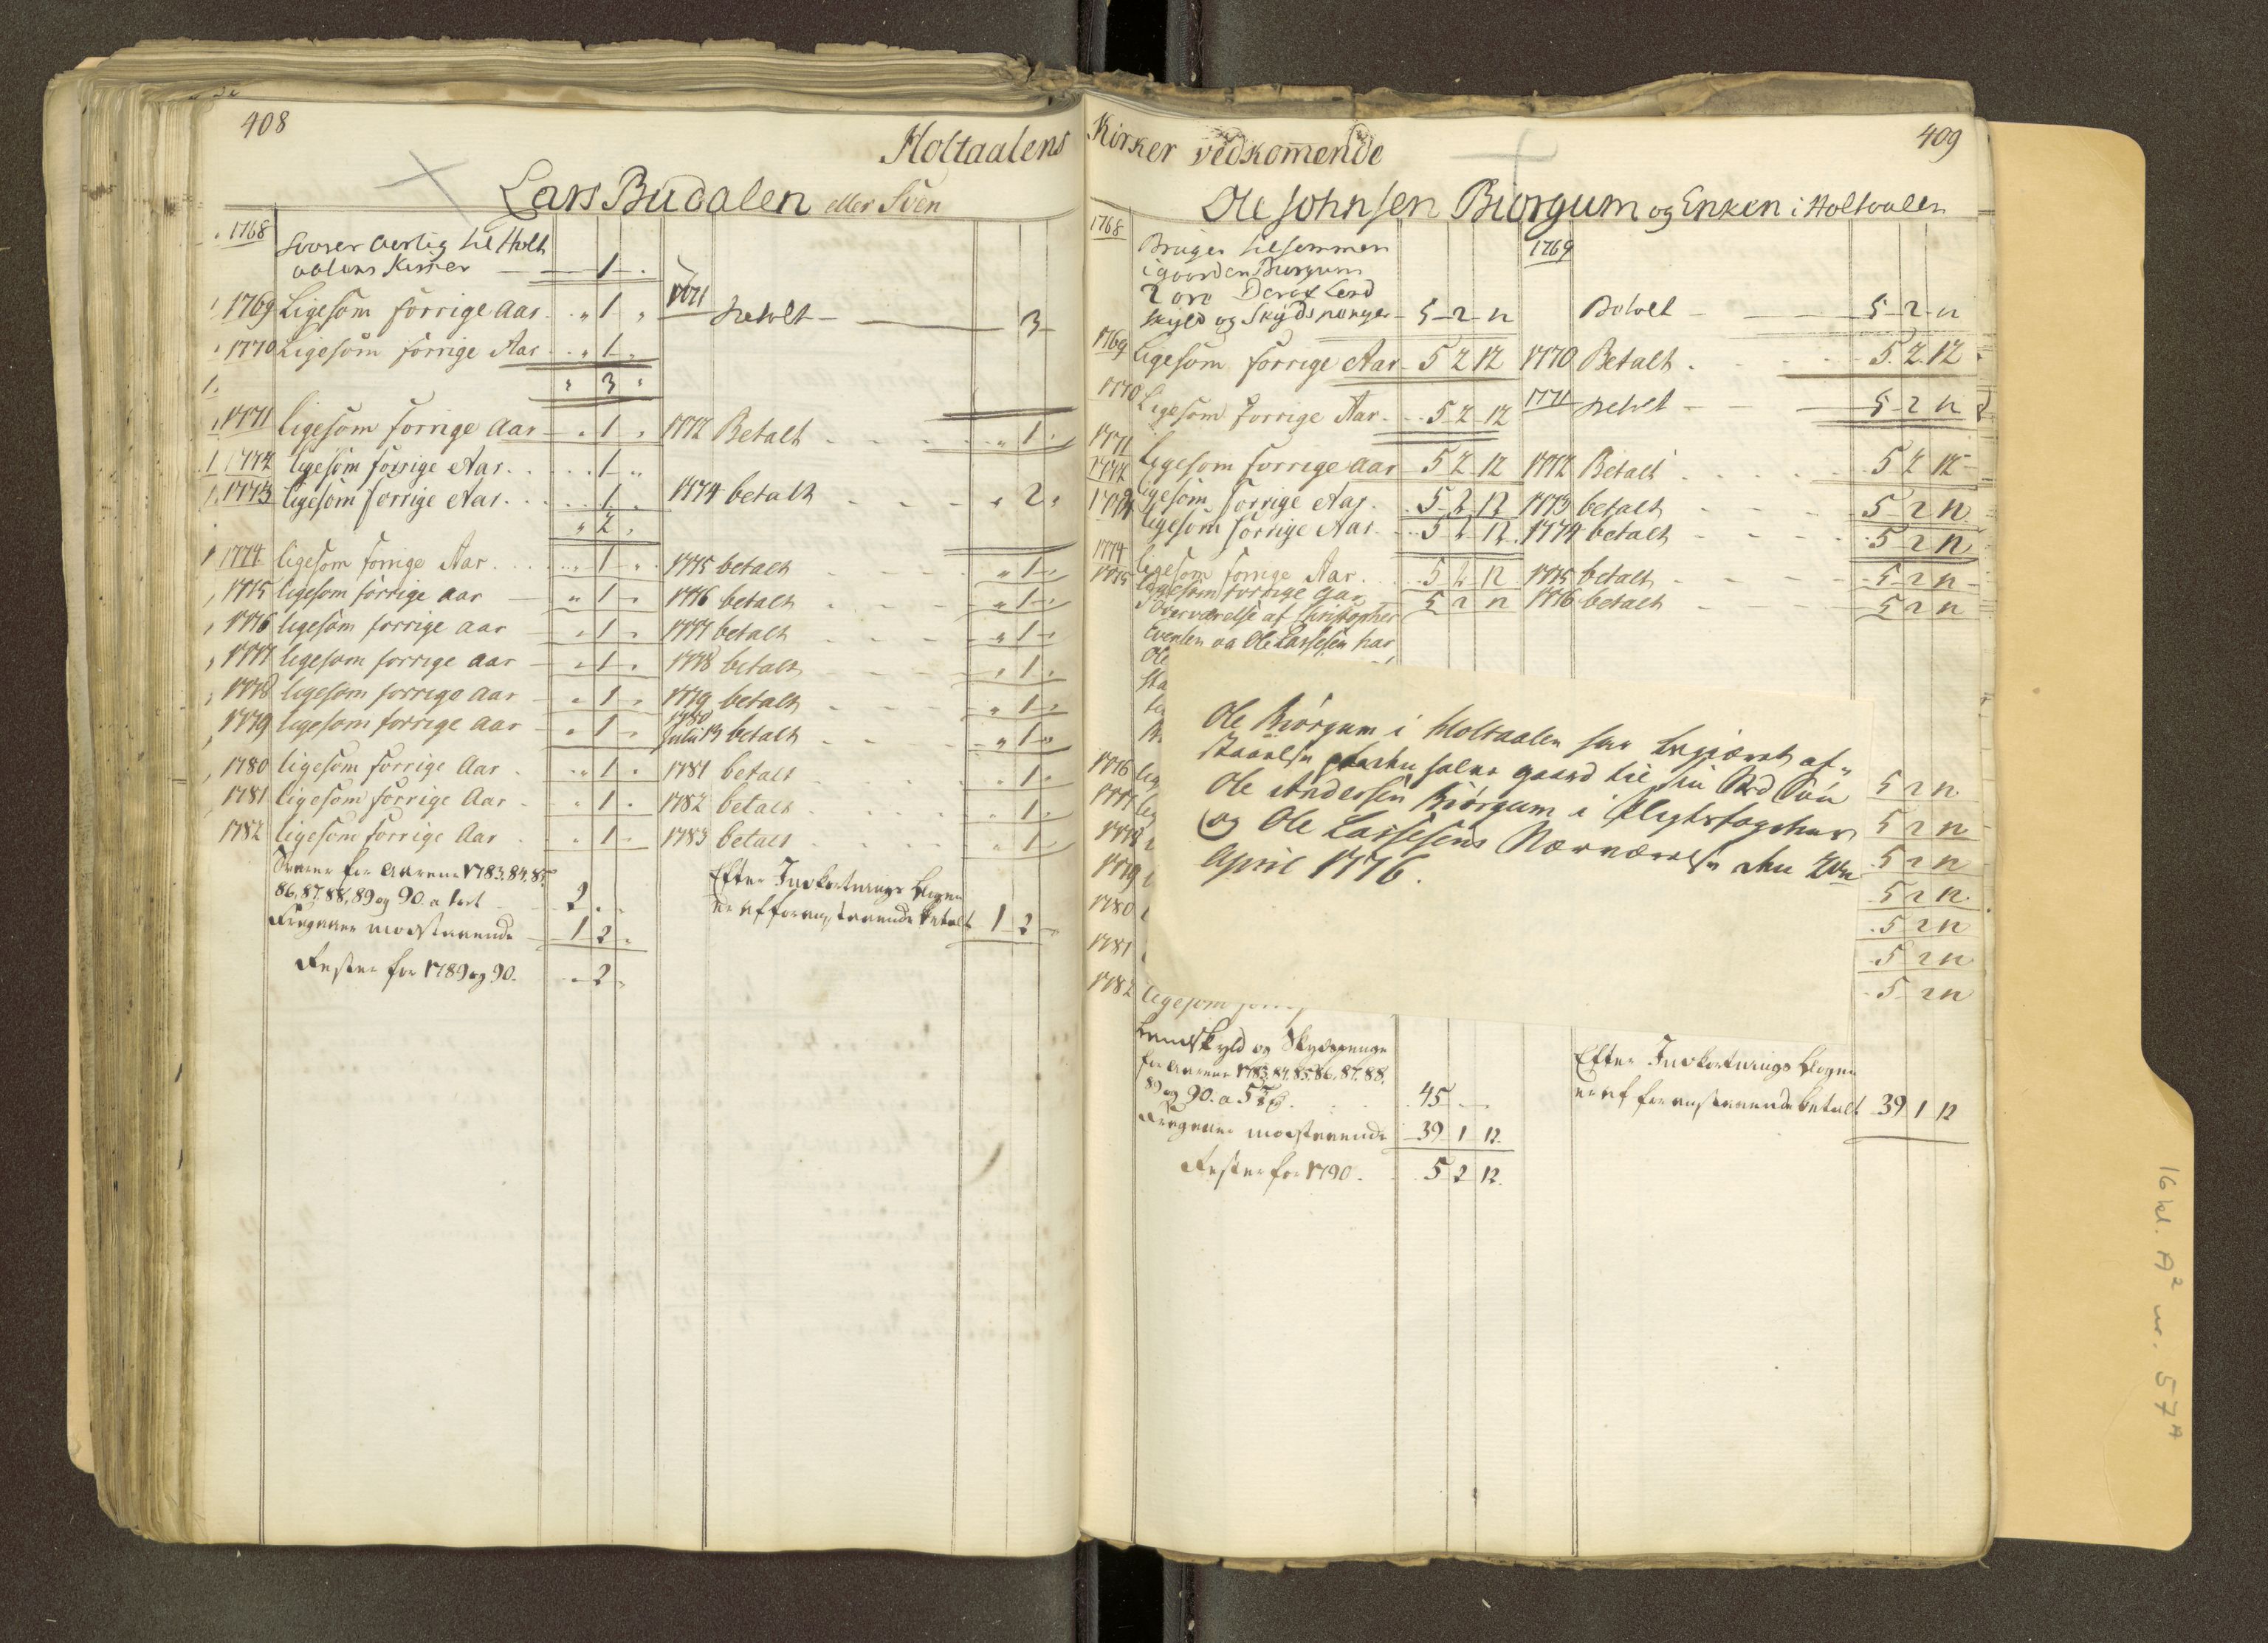 408
Holtaalens
Lars Budalen eller Sven
1768 Svarer aarlig til Holt
aalens Kirker — 1 -
1769 Ligesom forrige Aar " 1 " 1771 betalt — 3
1770 Ligesom forrige Aar " 1 "
" 3 "
1771 ligesom forrige Aar " 1 " 1772 Betalt " 1 "
1772 ligesom forrige Aar 1 "
1773 ligesom forrige Aar 1 1774 betalt " 2 "
" 2 "
1774 ligesom forrige Aar " 1 " 1775 betalt " 1 "
1775 ligesom forrige aar " 1 " 1776 betalt " 1 "
1776 ligesom forrige aar " 1 " 1777 betalt " 1 "
1777 ligesom forrige aar " 1 " 1778 betalt " 1 "
1778 ligesom forrige aar " 1 " 1779 betalt " 1 "
1779 ligesom forrige aar " 1 " 1780 Julii 13 betalt " 1 "
1780 ligesom forrige Aar " 1 " 1781 betalt " 1 "
1781 ligesom forrige Aar " 1 " 1782 betalt " 1 "
1782 ligesom forrige Aar " 1 " 1783 betalt " 1 "
Svarer for Aarene 1783. 84. 85.
86. 87. 88, 89 og 90. a 1 ort 2
Fragaaer modstaaende 1 2 "
Rester for 1789 og 90. " 2 "
Efter Indkortnings Bogen
er af foranstaaende betalt 1 2
Kirker vedkommende
409
Ole Johnsen Biorgum og Enken i Holtaalen
1768 Bruger tilsammen
i gaarden Biorgum
2 øre Deraf Land
skyld og Skydspenge 5 2 12 1769 Betalt 5 2 12
1769 Ligesom forrige Aar 5 2 12 1770 Betalt 5 2 12
1770 Ligesom forrige Aar 5 2 12 1771 betalt 5 2 12
1771 ligesom forrige aar 5 2 12 1772 Betalt 5 2 12
1772 ligesom forrige Aar 5 2 12 1773 betalt 5 2 12
1773 ligesom forrige Aar 5 2 12 1774 betalt 5 2 12
1774 ligesom forrige Aar 5 2 12 1775 betalt 5 2 12
1775 ligesom forrige aar 5 2 12 1776 betalt 5 2 12
Overværelse af Christopher
Evensen og Ole Larsesen har
Ole
Ole Biörgum i Holtaalen har begiæret af-
staaelse den halve gaard til sin Sön
Ole Andersen Biörgum i
og Ole Larsesens Nærværelse den 2den
April 1776.
1776 lig 5 2 12
1777 lig 5 2 12
1778 5 2 12
1779 5 2 12
1780 5 2 12
1781 5 2 12
1782 ligesom 5 2 12
Landskyld og Skydspenge
for Aarene 1783. 84. 85. 86. 87. 88.
89 og 90. a 45
Fragaaer modstaaende 39 1 12
Rester for 1790. 5 2 12
Efter Indkortnings Bogen
er af foranstaaende betalt 39 1 12
16 kl. A² nr. 57